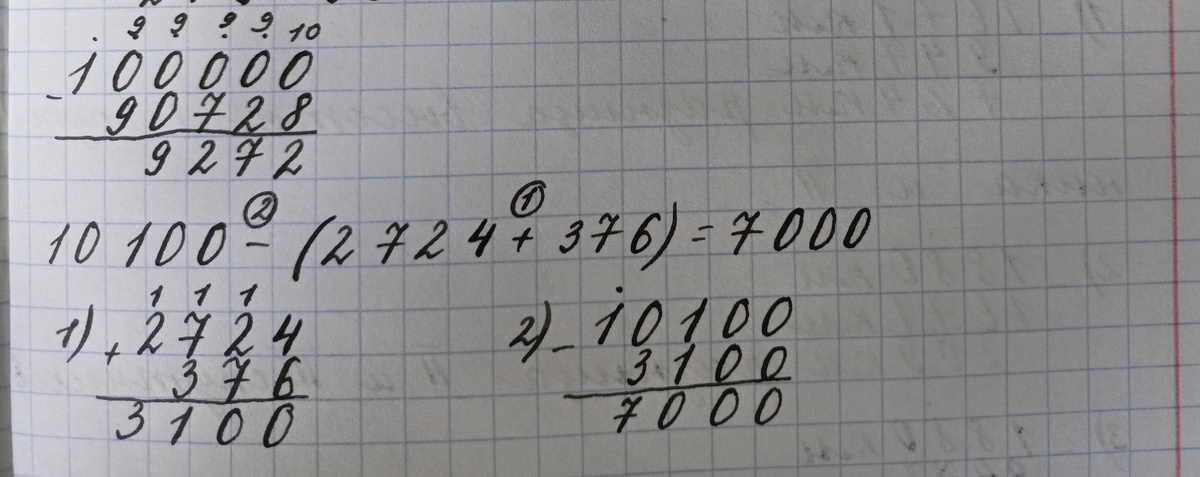 9 9 9 9 10
100000
- 90728
9272
② ①
10 100 - (2724 + 376) = 7000
1 1 1
1) + 2724
376
3100
2) - 10100
3100
7000